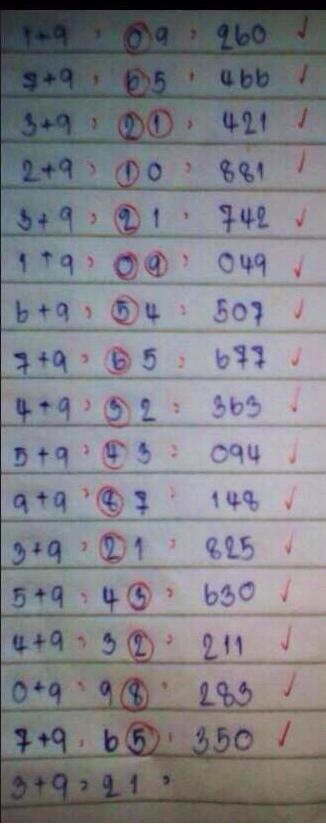 1+9 > 09 : 260 ✓
7+9 : 65 : 466 ✓
3+9 > 21 : 421 ✓
2+9 > 10 : 881 ✓
3+9 > 21 : 742 ✓
1+9 > 09 : 049 ✓
6+9 > 54 : 507 ✓
7+9 > 65 : 677 ✓
4+9 > 32 : 363 ✓
5+9 > 43 : 094 ✓
9+9 > 87 : 148 ✓
3+9 > 21 : 825 ✓
5+9 > 43 : 630 ✓
4+9 > 32 : 211 ✓
0+9 > 98 : 283 ✓
7+9 : 65 : 350 ✓
3+9 > 21 >